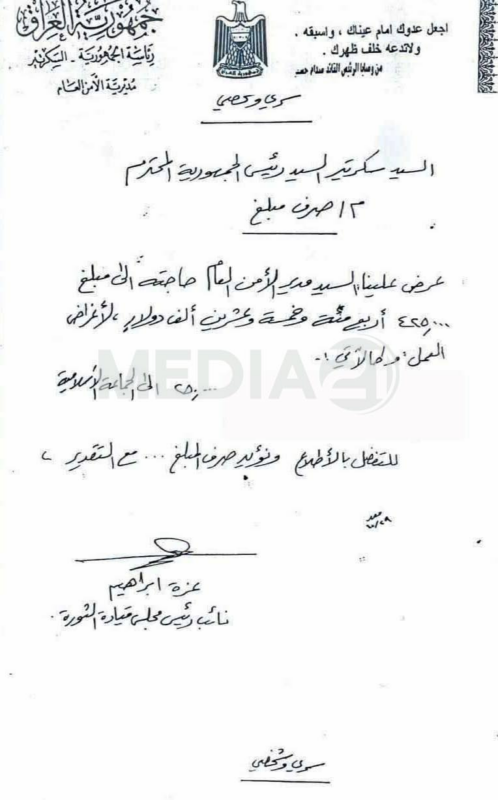 جمهورية العراق
رئاسة الجمهورية - السكرتير
مديرية الأمن العام
اجعل عدوك امام عيناك ، واسبقه .
ولاتدعه خلف ظهرك .
من وصايا الرئيس القائد صدام حسين
سري وشخصي
السيد سكرتير السيد رئيس الجمهورية المحترم
م / صرف مبلغ
عرض علينا السيد مدير الأمن العام حاجته الى مبلغ
٤٢٥,٠٠٠ أربع مئة وخمسة وعشرين ألف دولار، لأغراض
العمل، وكالآتي :-
٢٥,٠٠٠ الى الجماعة الأسلامية
MEDIA
للتفضل بالأطلاع ونؤيد صرف المبلغ ... مع التقدير ،
عزة ابراهيم
نائب رئيس مجلس قيادة الثورة .
سري وشخصي